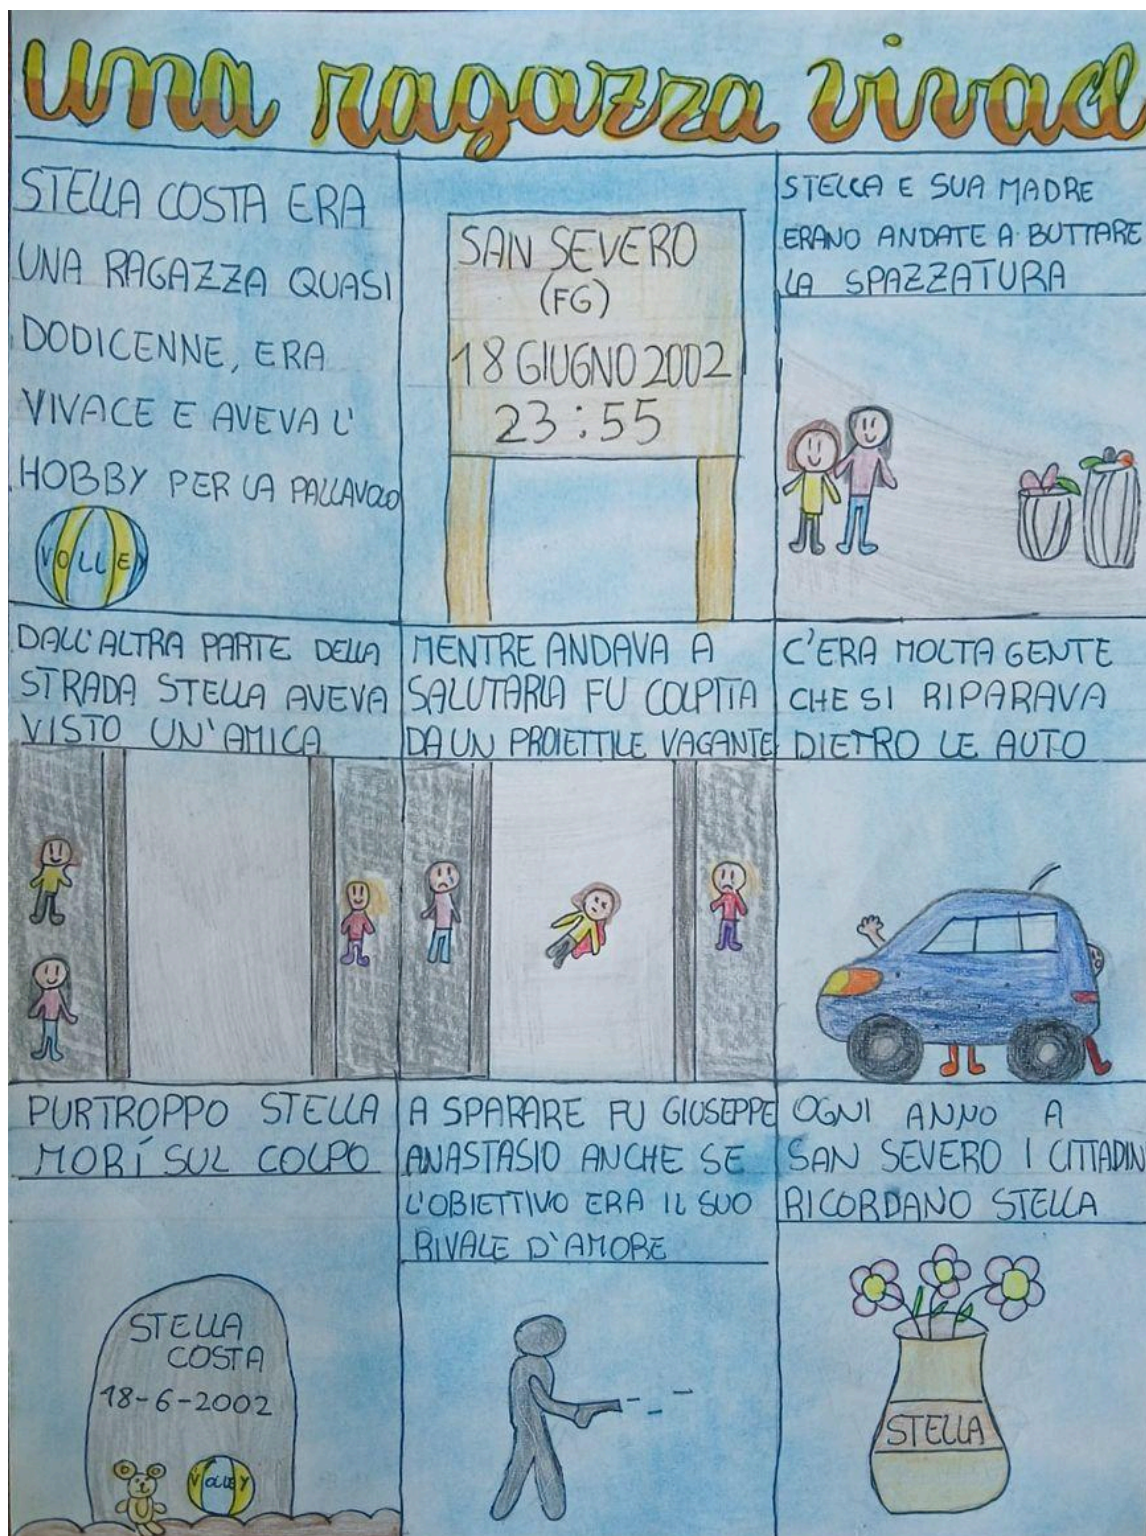 una ragazza vivac
STELLA COSTA ERA
UNA RAGAZZA QUASI
DODICENNE, ERA
VIVACE E AVEVA L'
HOBBY PER LA PALLAVOLO
VOLLEY
SAN SEVERO
(FG)
18 GIUGNO 2002
23:55
STELLA E SUA MADRE
ERANO ANDATE A BUTTARE
LA SPAZZATURA
DALL'ALTRA PARTE DELLA
STRADA STELLA AVEVA
VISTO UN'AMICA
MENTRE ANDAVA A
SALUTARLA FU COLPITA
DA UN PROIETTILE VAGANTE
C'ERA MOLTA GENTE
CHE SI RIPARAVA
DIETRO LE AUTO
PURTROPPO STELLA
MORÍ SUL COLPO
STELLA
COSTA
18-6-2002
VOLLEY
A SPARARE FU GIUSEPPE
ANASTASIO ANCHE SE
L'OBIETTIVO ERA IL SUO
RIVALE D'AMORE
OGNI ANNO A
SAN SEVERO I CITTADIN
RICORDANO STELLA
STELLA